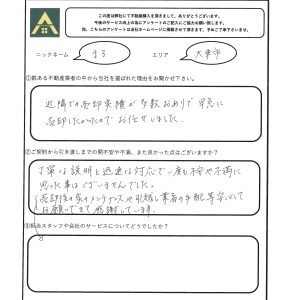 この度は弊社にて不動産購入を頂きまして、ありがとうございます。
今後のサービス向上の為にアンケートのご記入にご協力お願い致します。
尚、こちらのアンケートは会社ホームページに掲載させて頂きます。予めご了承下さいませ。
ニックネーム まる エリア 大東市
①数ある不動産業者の中から当社を選ばれた理由をお聞かせ下さい。
近隣での売却実績が多数おありで早急に
売却したかったのでお任せしました。
②ご契約から引き渡しまでの間不安や不満、また良かった点はございますか？
丁寧な説明と迅速な対応で一度も不安や不満に
思った事はございませんでした。
売却後の家のメンテナンスや引越し業者の手配等
お願いできて感謝しています。
③担当スタッフや会社のサービスについてどうでしたか？